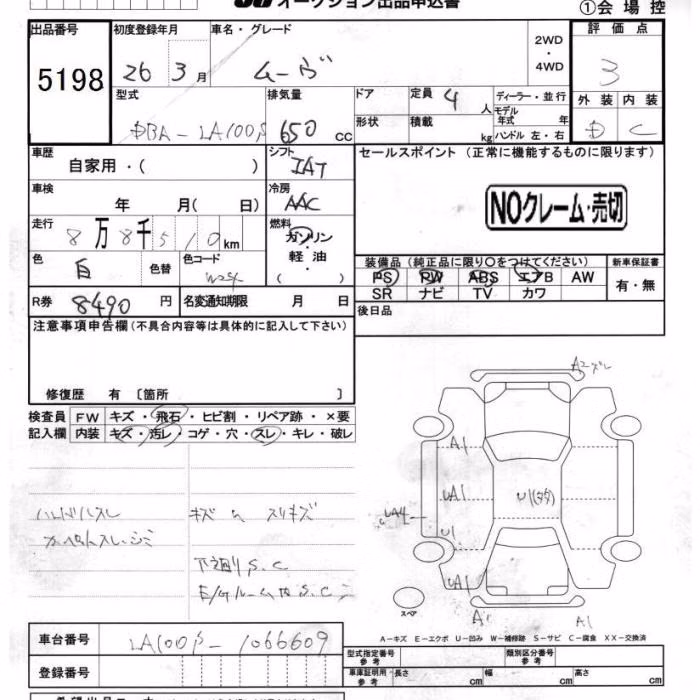 オークション出品申込書
①会場控
出品番号 5198
初度登録年月 26 3月
車名・グレード ムーヴ
2WD・4WD
評価点 3
外装 D 内装 C
型式 DBA-LA100S
排気量 650 CC
ドア
定員 4人
ディーラー・並行
形状
積載 kg
モデル年式 年
ハンドル 左・右
車歴 自家用・( )
シフト IAT
セールスポイント (正常に機能するものに限ります)
NOクレーム・売切
車検 年 月( 日)
冷房 AAC
走行 8万8千510km
燃料 ガソリン・軽油 ( )
色 白 色替
色コード W24
装備品 (純正品に限り○をつけてください)
新車保証書
PS PW ABS エアB AW
SR ナビ TV カワ
有・無
R券 8490円
名変通知期限 月 日
後日品
注意事項申告欄(不具合内容等は具体的に記入して下さい)
修復歴 有〔箇所 〕
検査員記入欄
FW キズ・飛石・ヒビ割・リペア跡・×要
内装 キズ・汚レ・コゲ・穴・スレ・キレ・破レ
ハンドルスレ
キズ U スリキズ
下廻りS.C
A2
A1
UA1
U1
UA1
A1
スペア
A-キズ E-エクボ U-凹み W-補修跡 S-サビ C-腐食 XX-交換済
車台番号 LA100S-1066609
登録番号
型式指定番号 参考
類別区分番号 参考
車庫証明用 参考 長さ cm 幅 cm 高さ cm